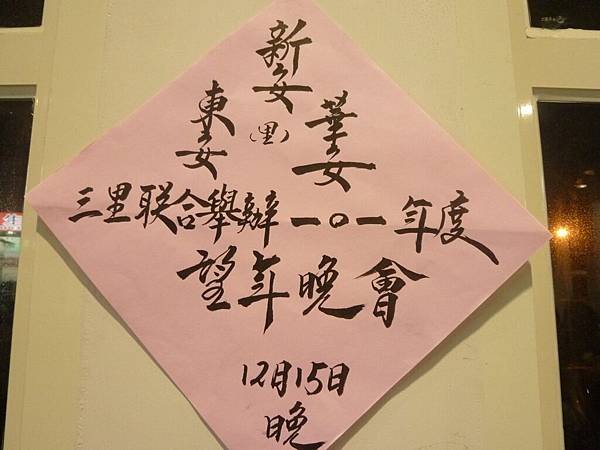 新安
東安
(里)
華安
三里联合舉辦一〇一年度
望年晚會
12月15日
晚